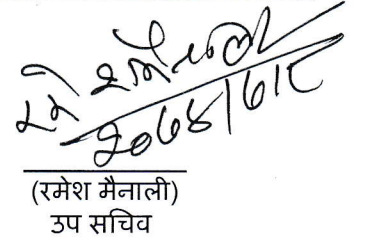 २०७४।७।८
(रमेश मैनाली)
उप सचिव